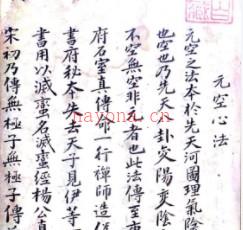 元空心法
元空之法本於先天河圖理氣陰
也空也乃先天卦爻陽爻陰
不空無空非者也此法傳至
府石室真傳命一行禪師造
書府秘本失去天子見伊等
書用以滅蠻名滅蠻經楊公
宋初乃傳無極子無極子傳
nayona.cn